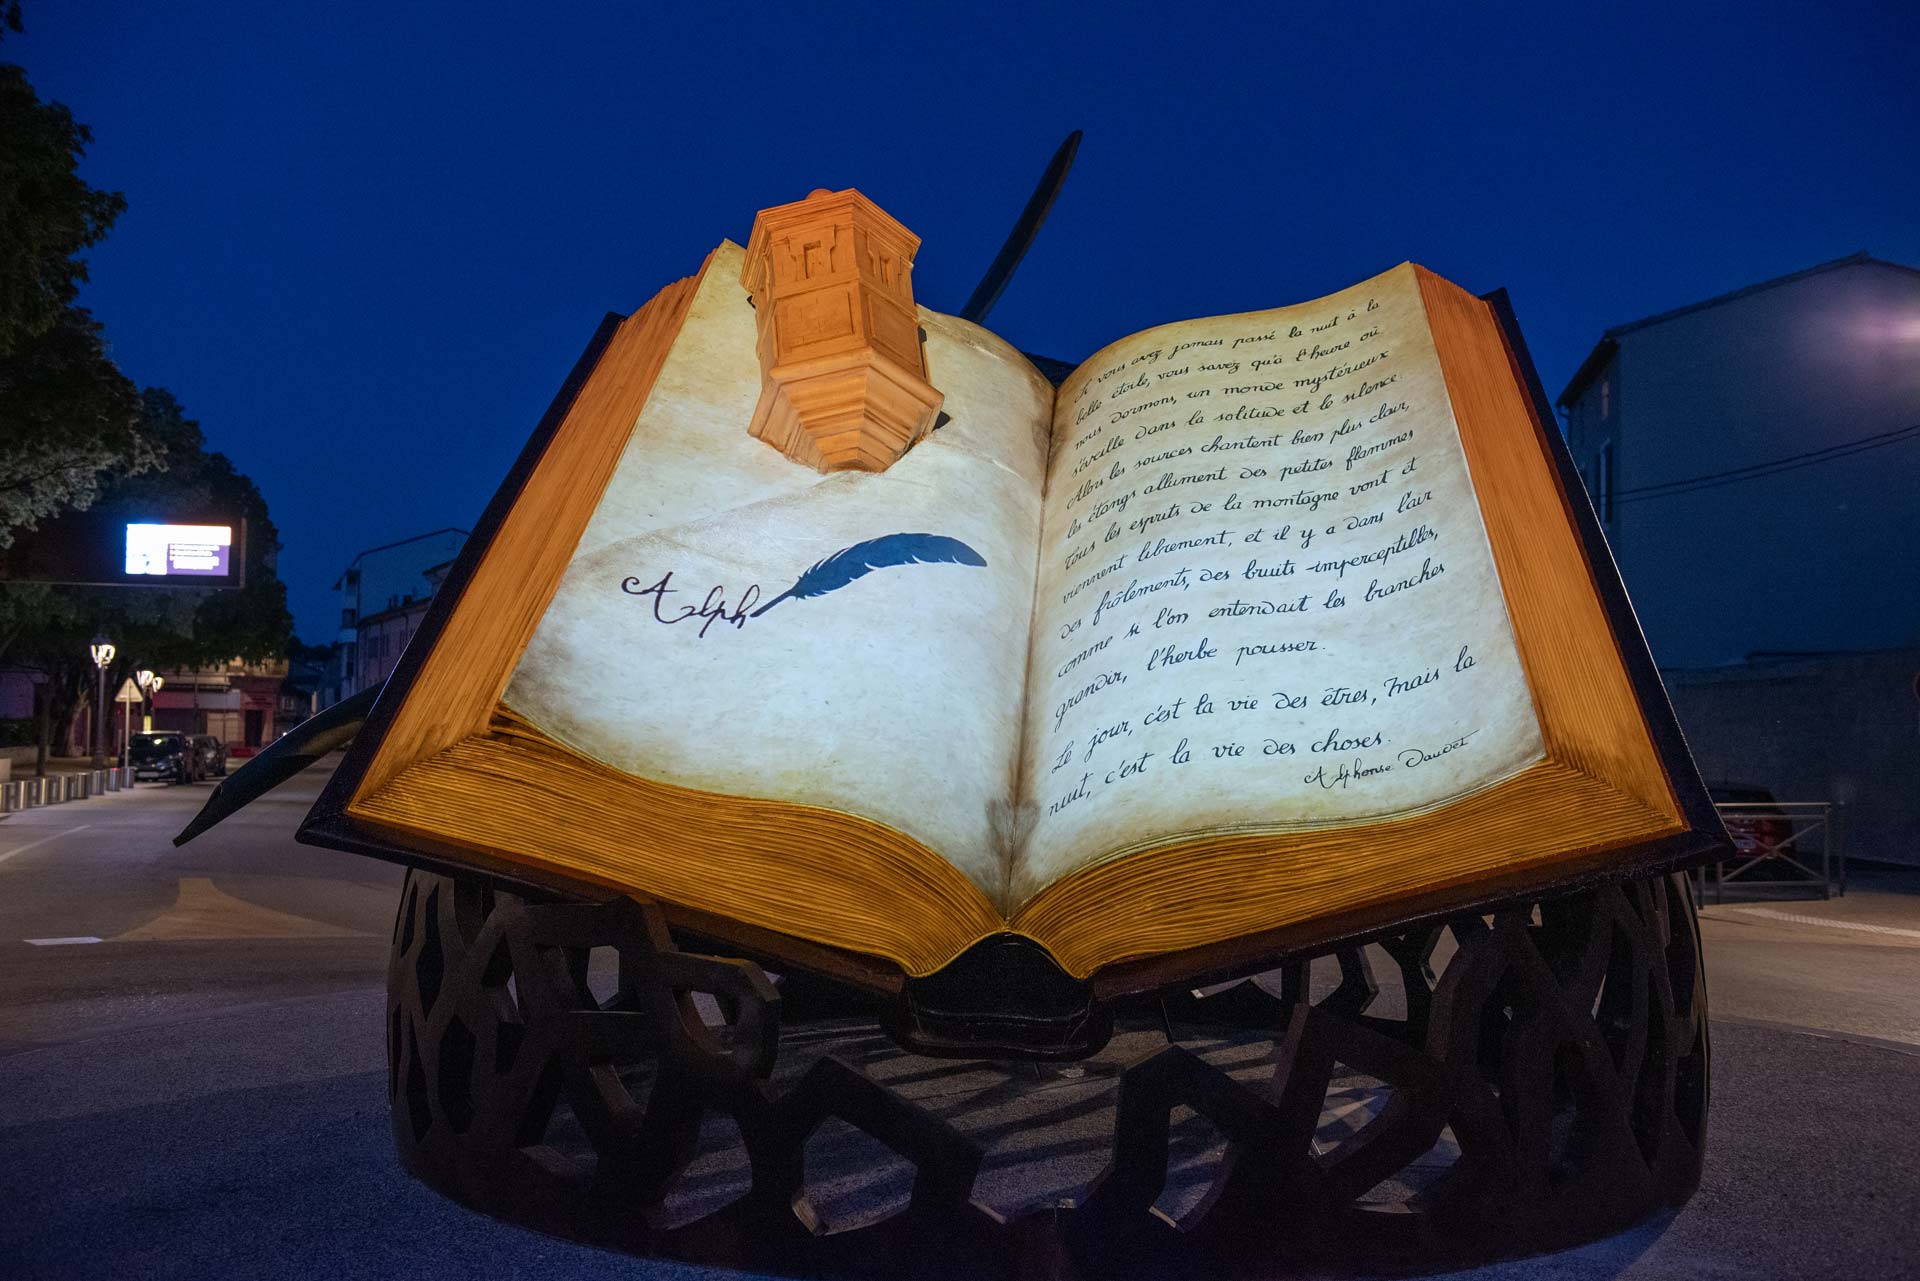 Alph
Si vous avez jamais passé la nuit à la
belle étoile, vous savez qu'à l'heure où
nous dormons, un monde mystérieux
s'éveille dans la solitude et le silence.
Alors les sources chantent bien plus clair,
les étangs allument des petites flammes
Tous les esprits de la montagne vont et
viennent librement, et il y a dans l'air
des frôlements, des bruits imperceptibles,
comme si l'on entendait les branches
grandir, l'herbe pousser.
Le jour, c'est la vie des êtres, mais la
nuit, c'est la vie des choses.
Alphonse Daudet